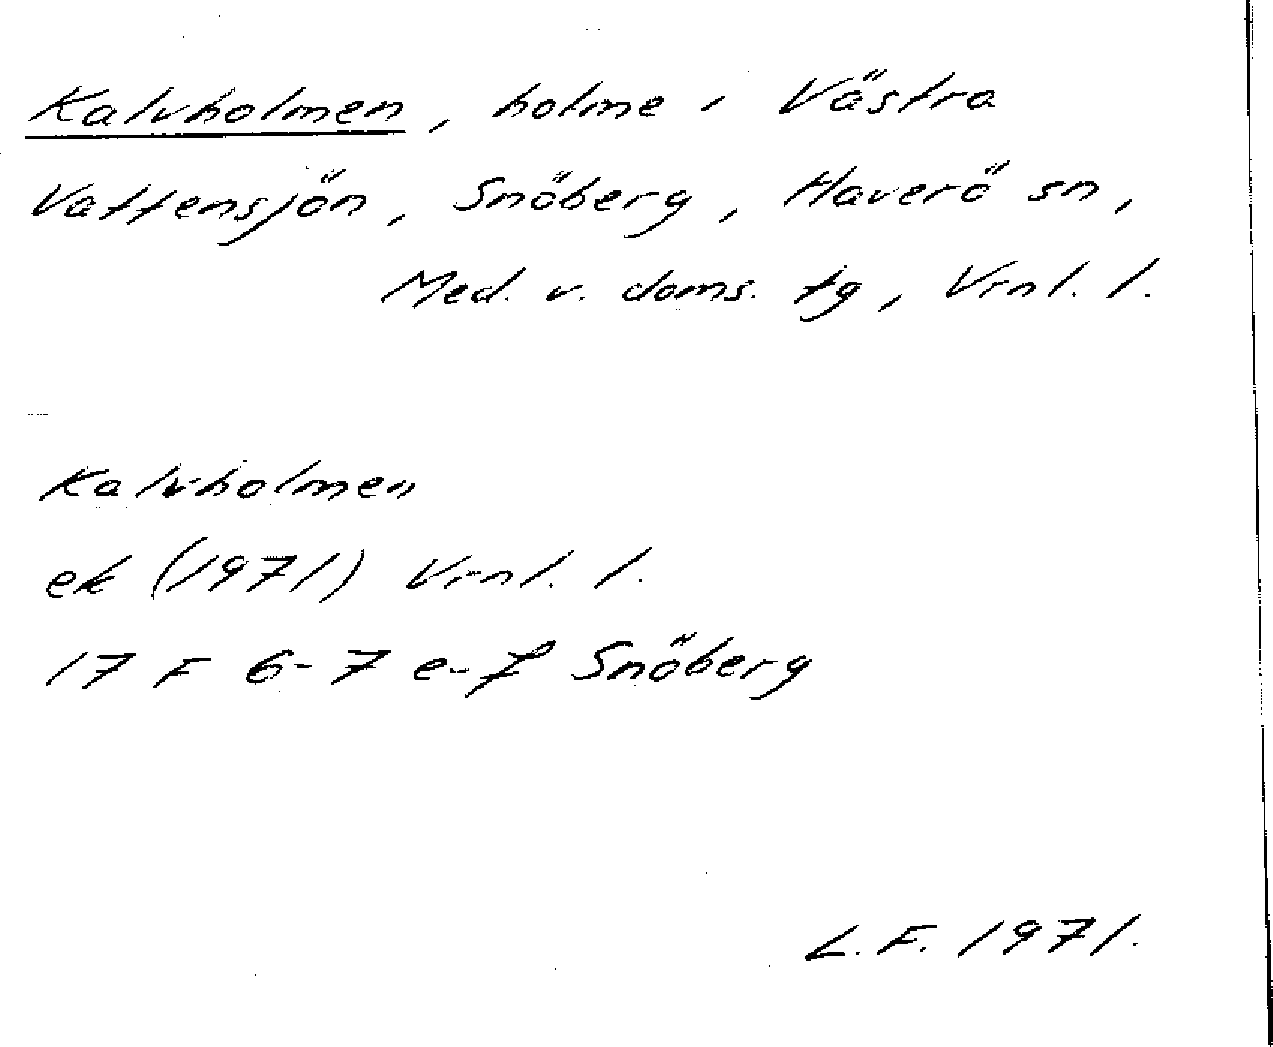 Kalvholmen, holme i Västra
Vattensjön, Snöberg, Haverö sn,
Med. v. doms. tg, Vrnl. l.
Kalvholmen
ek (1971) Vrnl. l.
17 F 6-7 e-f Snöberg
L.F. 1971.